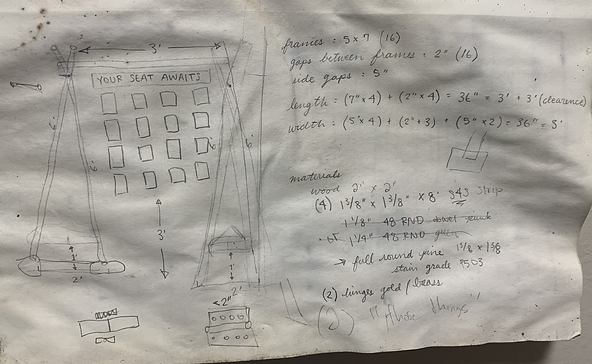 3'
YOUR SEAT AWAITS
6'
6'
6'
6'
3'
1'
2'
1'
2'
<2"
frames: 5 x 7 (16)
gaps between frames = 2" (16)
side gaps = 5"
length: (7" x 4) + (2" x 4) = 36" = 3' + 3' (clearance)
width: (5 x 4) + (2 x 3) + (5" x 2) = 36" = 3'
materials
wood 2' x 2'
(4) 1 3/8" x 1 3/8" x 8' S4S
1 1/8" 48 RND dowel
1 1/4" 48 RND
→ full round pine 1 3/8 x 1 3/8
stain grade
(2) hinges gold / brass
(2) "Things"